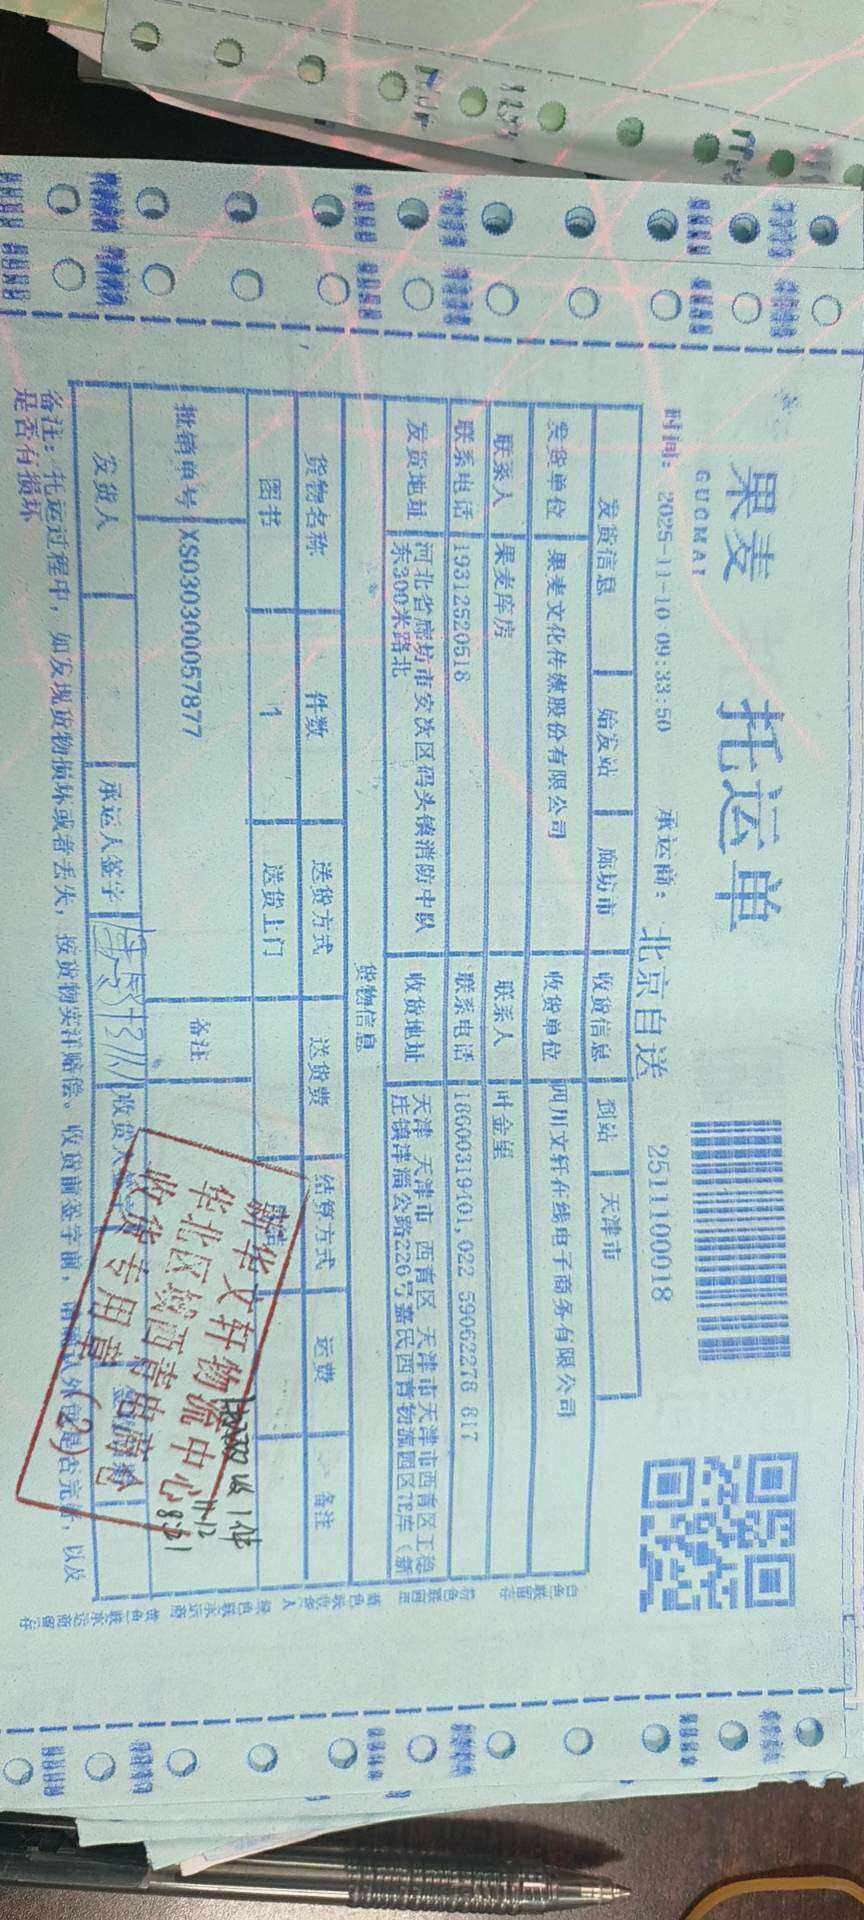 果麦 托运单
GUOMAI
时间: 2025-11-10 09:33:50 承运商: 北京自送 2511100018
发货信息 始发站 廊坊市 收货信息 到站 天津市
发货单位 果麦文化传媒股份有限公司 收货单位 四川文轩在线电子商务有限公司
联系人 果麦库房 联系人
联系电话 19312520518 联系电话 18600319401,022 59062278 817
发货地址 河北省廊坊市安次区码头镇消防中队东300米路北 收货地址 天津 天津市 西青区 天津市天津市西青区王稳庄镇津淄公路226号嘉民西青物流园区
货物信息
货物名称 件数 送货方式 送货费 结算方式 运费 备注
图书 1 送货上门
批销单号 XS030300057877 备注
发货人 承运人签字 收货人
备注: 托运过程中, 如发现货物损坏或者丢失, 按货物实洋赔偿。收货前签字前, 以及
是否有损坏
新华文轩物流中心
华北区域西青电商仓
收货专用章
(2)
1件
11-12
8:21